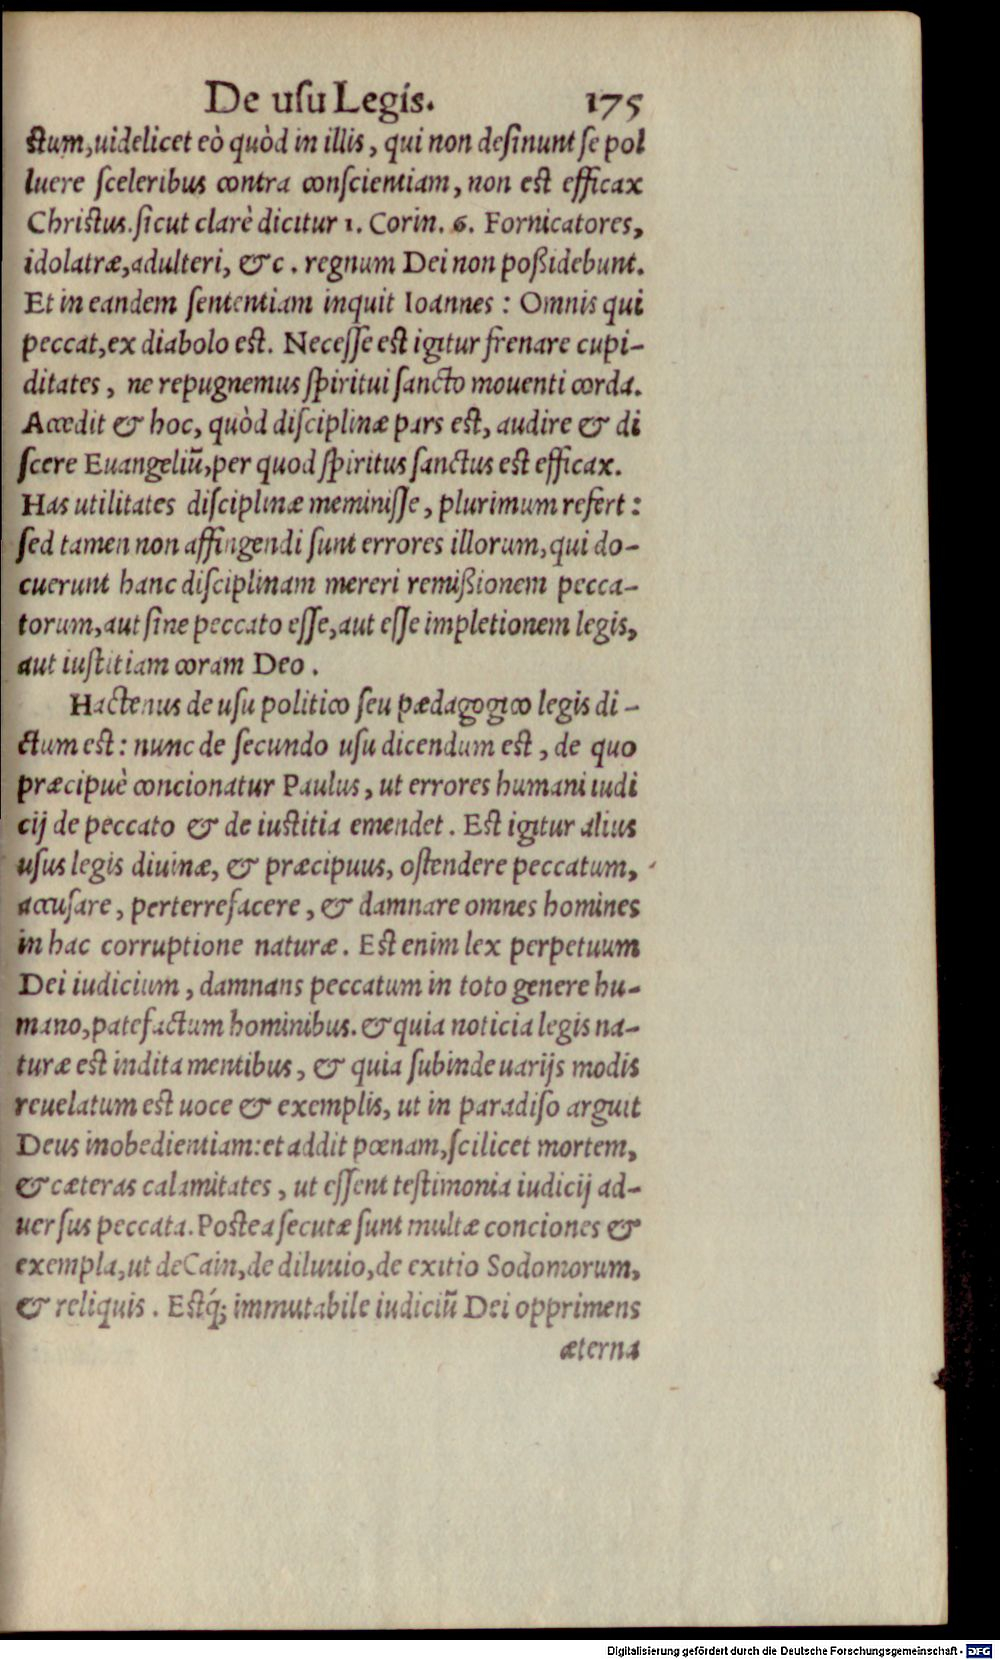 De usu Legis. 175
ctum, uidelicet eò quòd in illis, qui non desinunt se pol
luere sceleribus contra conscientiam, non est efficax
Christus. sicut clarè dicitur 1. Corin. 6. Fornicatores,
idolatræ, adulteri, &c. regnum Dei non poßidebunt.
Et in eandem sententiam inquit Ioannes: Omnis qui
peccat, ex diabolo est. Necesse est igitur frenare cupi-
ditates, ne repugnemus spiritui sancto mouenti corda.
Accedit & hoc, quòd disciplinæ pars est, audire & di
scere Euangeliũ, per quod spiritus sanctus est efficax.
Has utilitates disciplinæ meminisse, plurimum refert:
sed tamen non affingendi sunt errores illorum, qui do-
cuerunt hanc disciplinam mereri remißionem pecca-
torum, aut sine peccato esse, aut esse impletionem legis,
aut iustitiam coram Deo.
Hactenus de usu politico seu pædagogico legis di-
ctum est: nunc de secundo usu dicendum est, de quo
præcipuè concionatur Paulus, ut errores humani iudi
cij de peccato & de iustitia emendet. Est igitur alius
usus legis diuinæ, & præcipuus, ostendere peccatum,
accusare, perterrefacere, & damnare omnes homines
in hac corruptione naturæ. Est enim lex perpetuum
Dei iudicium, damnans peccatum in toto genere hu-
mano, patefactum hominibus. & quia noticia legis na-
turæ est indita mentibus, & quia subinde uarijs modis
reuelatum est uoce & exemplis, ut in paradiso arguit
Deus inobedientiam: et addit pœnam, scilicet mortem,
& cæteras calamitates, ut essent testimonia iudicij ad-
uersus peccata. Postea secutæ sunt multæ conciones &
exempla, ut de Cain, de diluuio, de exitio Sodomorum,
& reliquis. Estq́; immutabile iudiciũ Dei opprimens
æterna
Digitalisierung gefördert durch die Deutsche Forschungsgemeinschaft - DFG